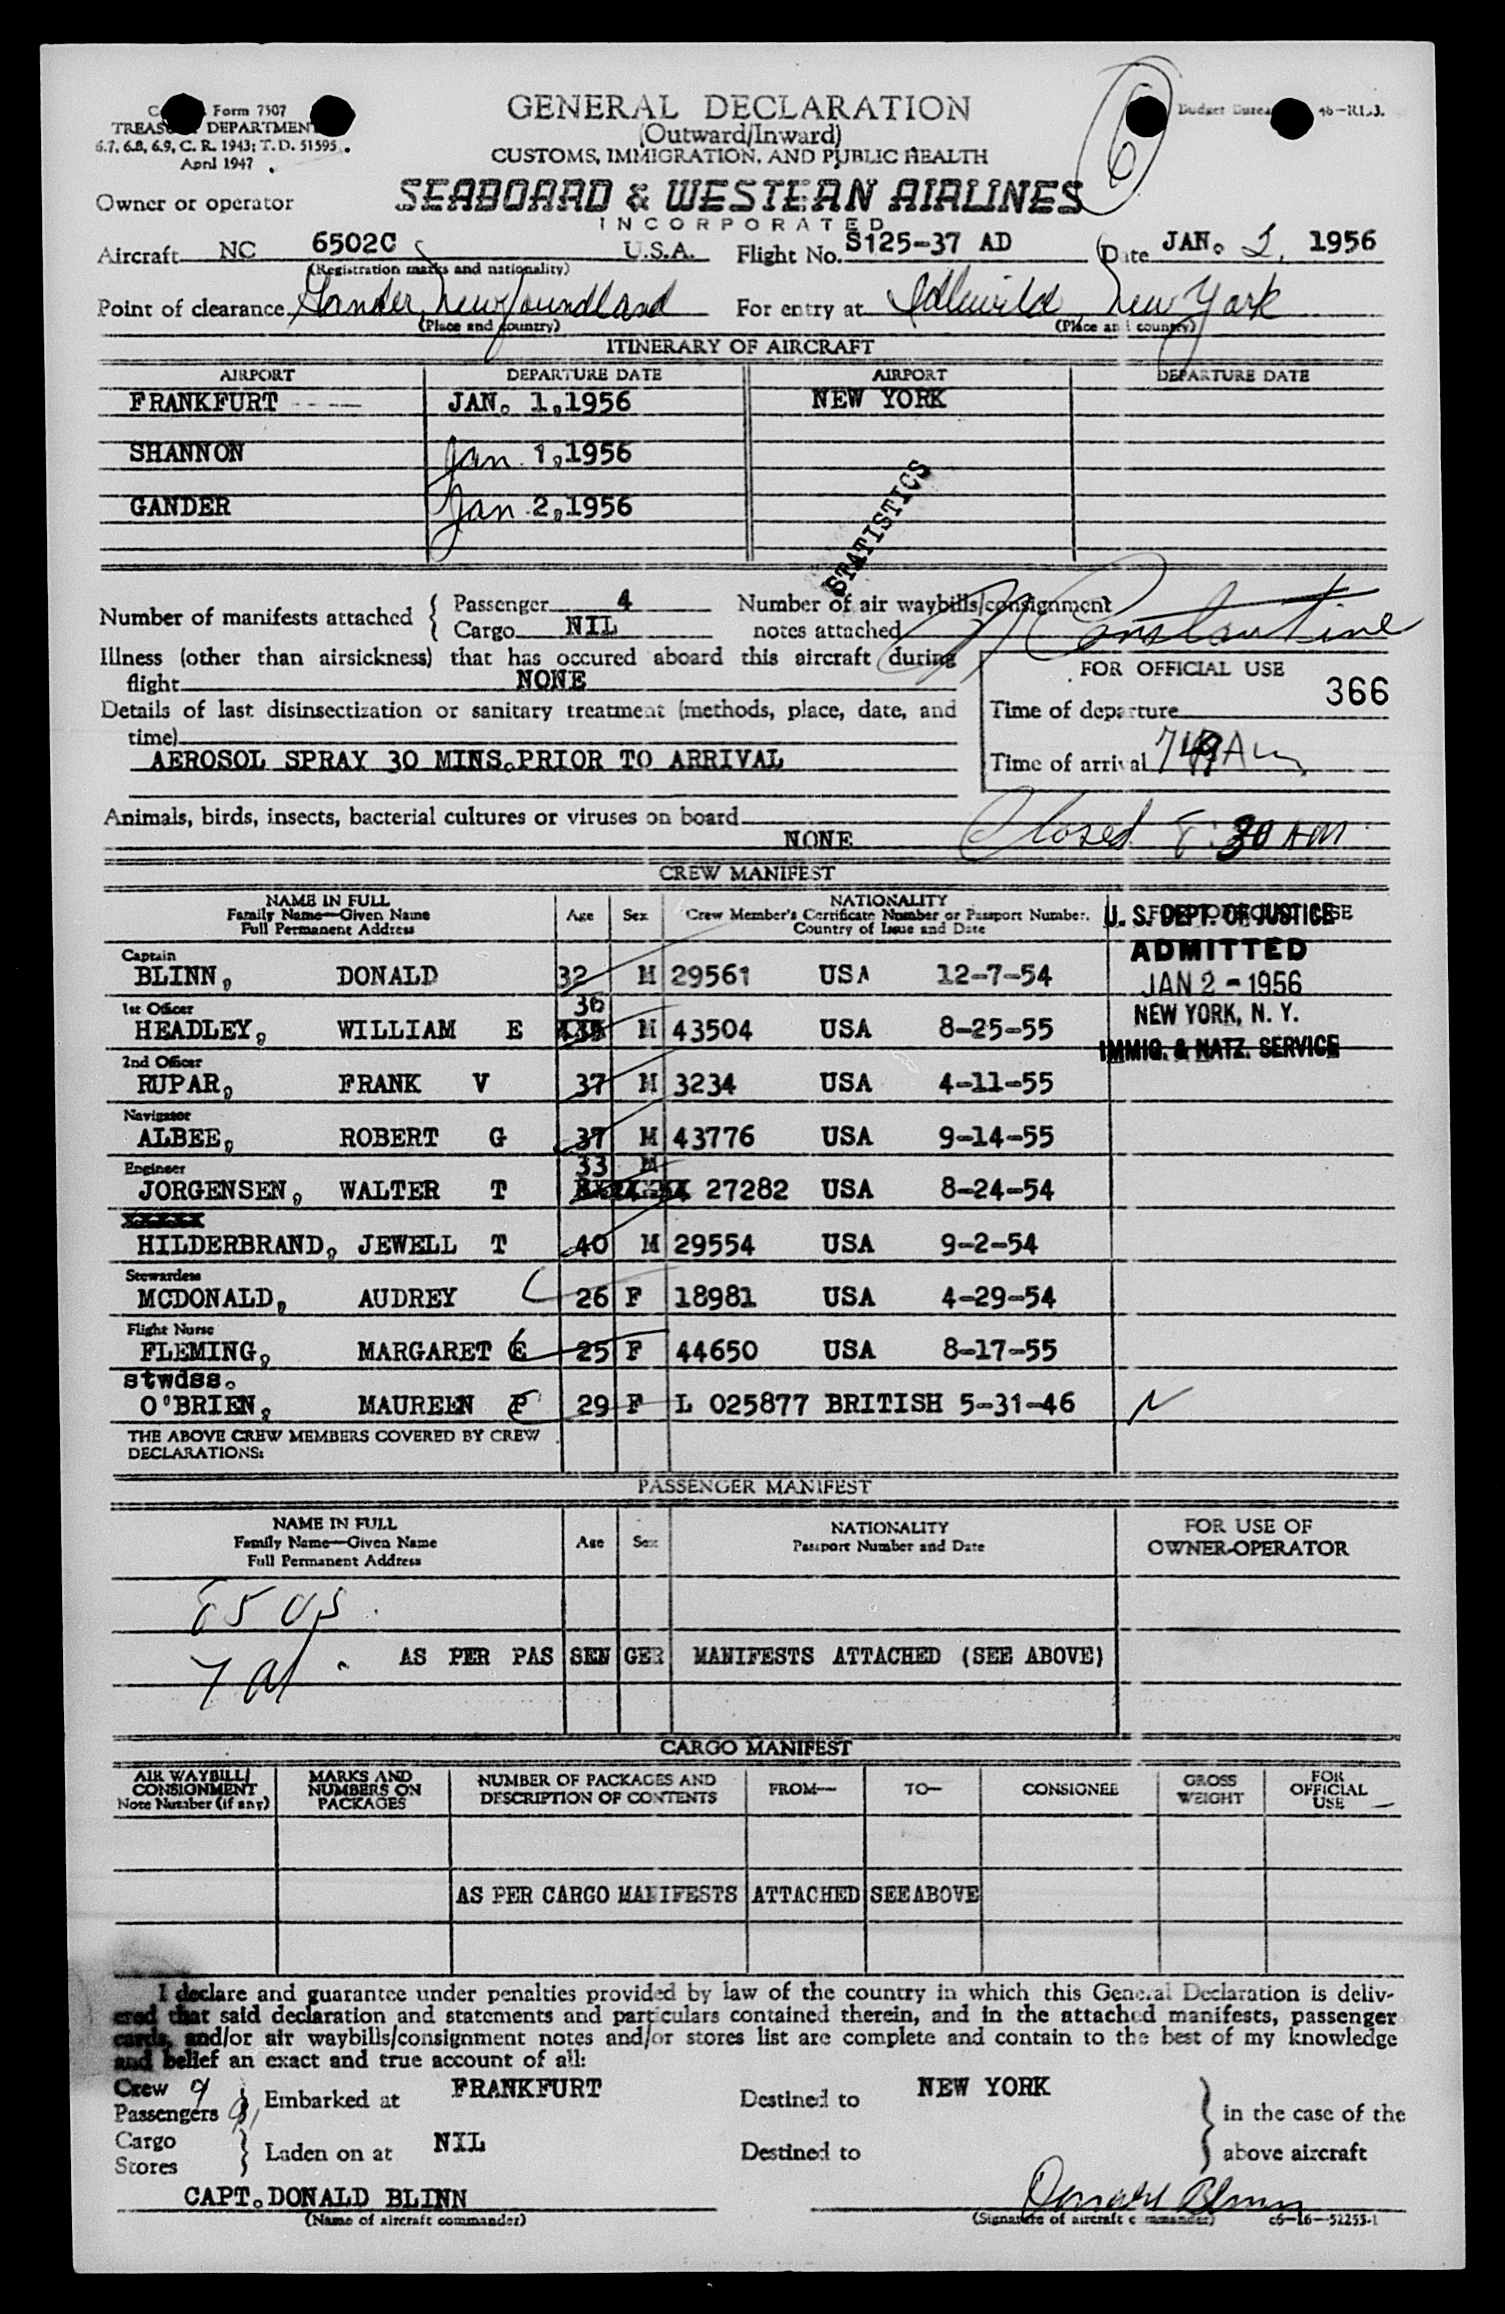 Form 7507
TREASURY DEPARTMENT
6.7, 6.8, 6.9, C. R. 1943; T. D. 51595
April 1947
GENERAL DECLARATION
(Outward/Inward)
CUSTOMS, IMMIGRATION, AND PUBLIC HEALTH
6
46-R1.3.
Owner or operator
SEABOARD & WESTERN AIRLINES
INCORPORATED
Aircraft NC 6502C U.S.A. Flight No. S125-37 AD Date JAN. 2, 1956
(Registration marks and nationality)
Point of clearance Gander, Newfoundland For entry at Idlewild, New York
(Place and country) (Place and country)
ITINERARY OF AIRCRAFT
AIRPORT DEPARTURE DATE AIRPORT DEPARTURE DATE
FRANKFURT ---- JAN. 1,1956 NEW YORK
SHANNON Jan. 1,1956
GANDER Jan. 2,1956
STATISTICS
Number of manifests attached { Passenger 4 Number of air waybills/consignment
Cargo NIL notes attached
Constantine
Illness (other than airsickness) that has occured aboard this aircraft during
flight NONE
FOR OFFICIAL USE
366
Details of last disinsectization or sanitary treatment (methods, place, date, and
time)
Time of departure
AEROSOL SPRAY 30 MINS.PRIOR TO ARRIVAL
Time of arrival 749 AM
Animals, birds, insects, bacterial cultures or viruses on board
NONE
Closed 8:30 AM
CREW MANIFEST
NAME IN FULL
Family Name—Given Name
Full Permanent Address
Age Sex
NATIONALITY
Crew Member's Certificate Number or Passport Number.
Country of Issue and Date
U. S. DEPT. OF JUSTICE
ADMITTED
JAN 2 - 1956
NEW YORK, N. Y.
IMMIG. & NATZ. SERVICE
Captain
BLINN, DONALD 32 M 29561 USA 12-7-54
1st Officer
HEADLEY, WILLIAM E 36 M 43504 USA 8-25-55
2nd Officer
RUPAR, FRANK V 37 M 3234 USA 4-11-55
Navigator
ALBEE, ROBERT G 37 M 43776 USA 9-14-55
Engineer
JORGENSEN, WALTER T 33 M 27282 USA 8-24-54
xxxxx
HILDERBRAND, JEWELL T 40 M 29554 USA 9-2-54
Stewardess
MCDONALD, AUDREY 26 F 18981 USA 4-29-54
Flight Nurse
FLEMING, MARGARET E 25 F 44650 USA 8-17-55
stwdss.
O'BRIEN, MAUREEN F 29 F L 025877 BRITISH 5-31-46
THE ABOVE CREW MEMBERS COVERED BY CREW
DECLARATIONS:
PASSENGER MANIFEST
NAME IN FULL
Family Name—Given Name
Full Permanent Address
Age Sex
NATIONALITY
Passport Number and Date
FOR USE OF
OWNER-OPERATOR
85 US
7 al.
AS PER PASSENGER MANIFESTS ATTACHED (SEE ABOVE)
CARGO MANIFEST
AIR WAYBILL/
CONSIGNMENT
Note Number (if any)
MARKS AND
NUMBERS ON
PACKAGES
NUMBER OF PACKAGES AND
DESCRIPTION OF CONTENTS
FROM—
TO—
CONSIGNEE
GROSS
WEIGHT
FOR
OFFICIAL
USE
AS PER CARGO MANIFESTS ATTACHED SEEABOVE
I declare and guarantee under penalties provided by law of the country in which this General Declaration is deliv-
ered that said declaration and statements and particulars contained therein, and in the attached manifests, passenger
cards, and/or air waybills/consignment notes and/or stores list are complete and contain to the best of my knowledge
and belief an exact and true account of all:
Crew 9
Passengers
Embarked at FRANKFURT Destined to NEW YORK
in the case of the
Cargo
Stores
Laden on at NIL Destined to
above aircraft
CAPT.DONALD BLINN Donald Blinn
(Name of aircraft commander) (Signature of aircraft commander) c6-16-52255-1